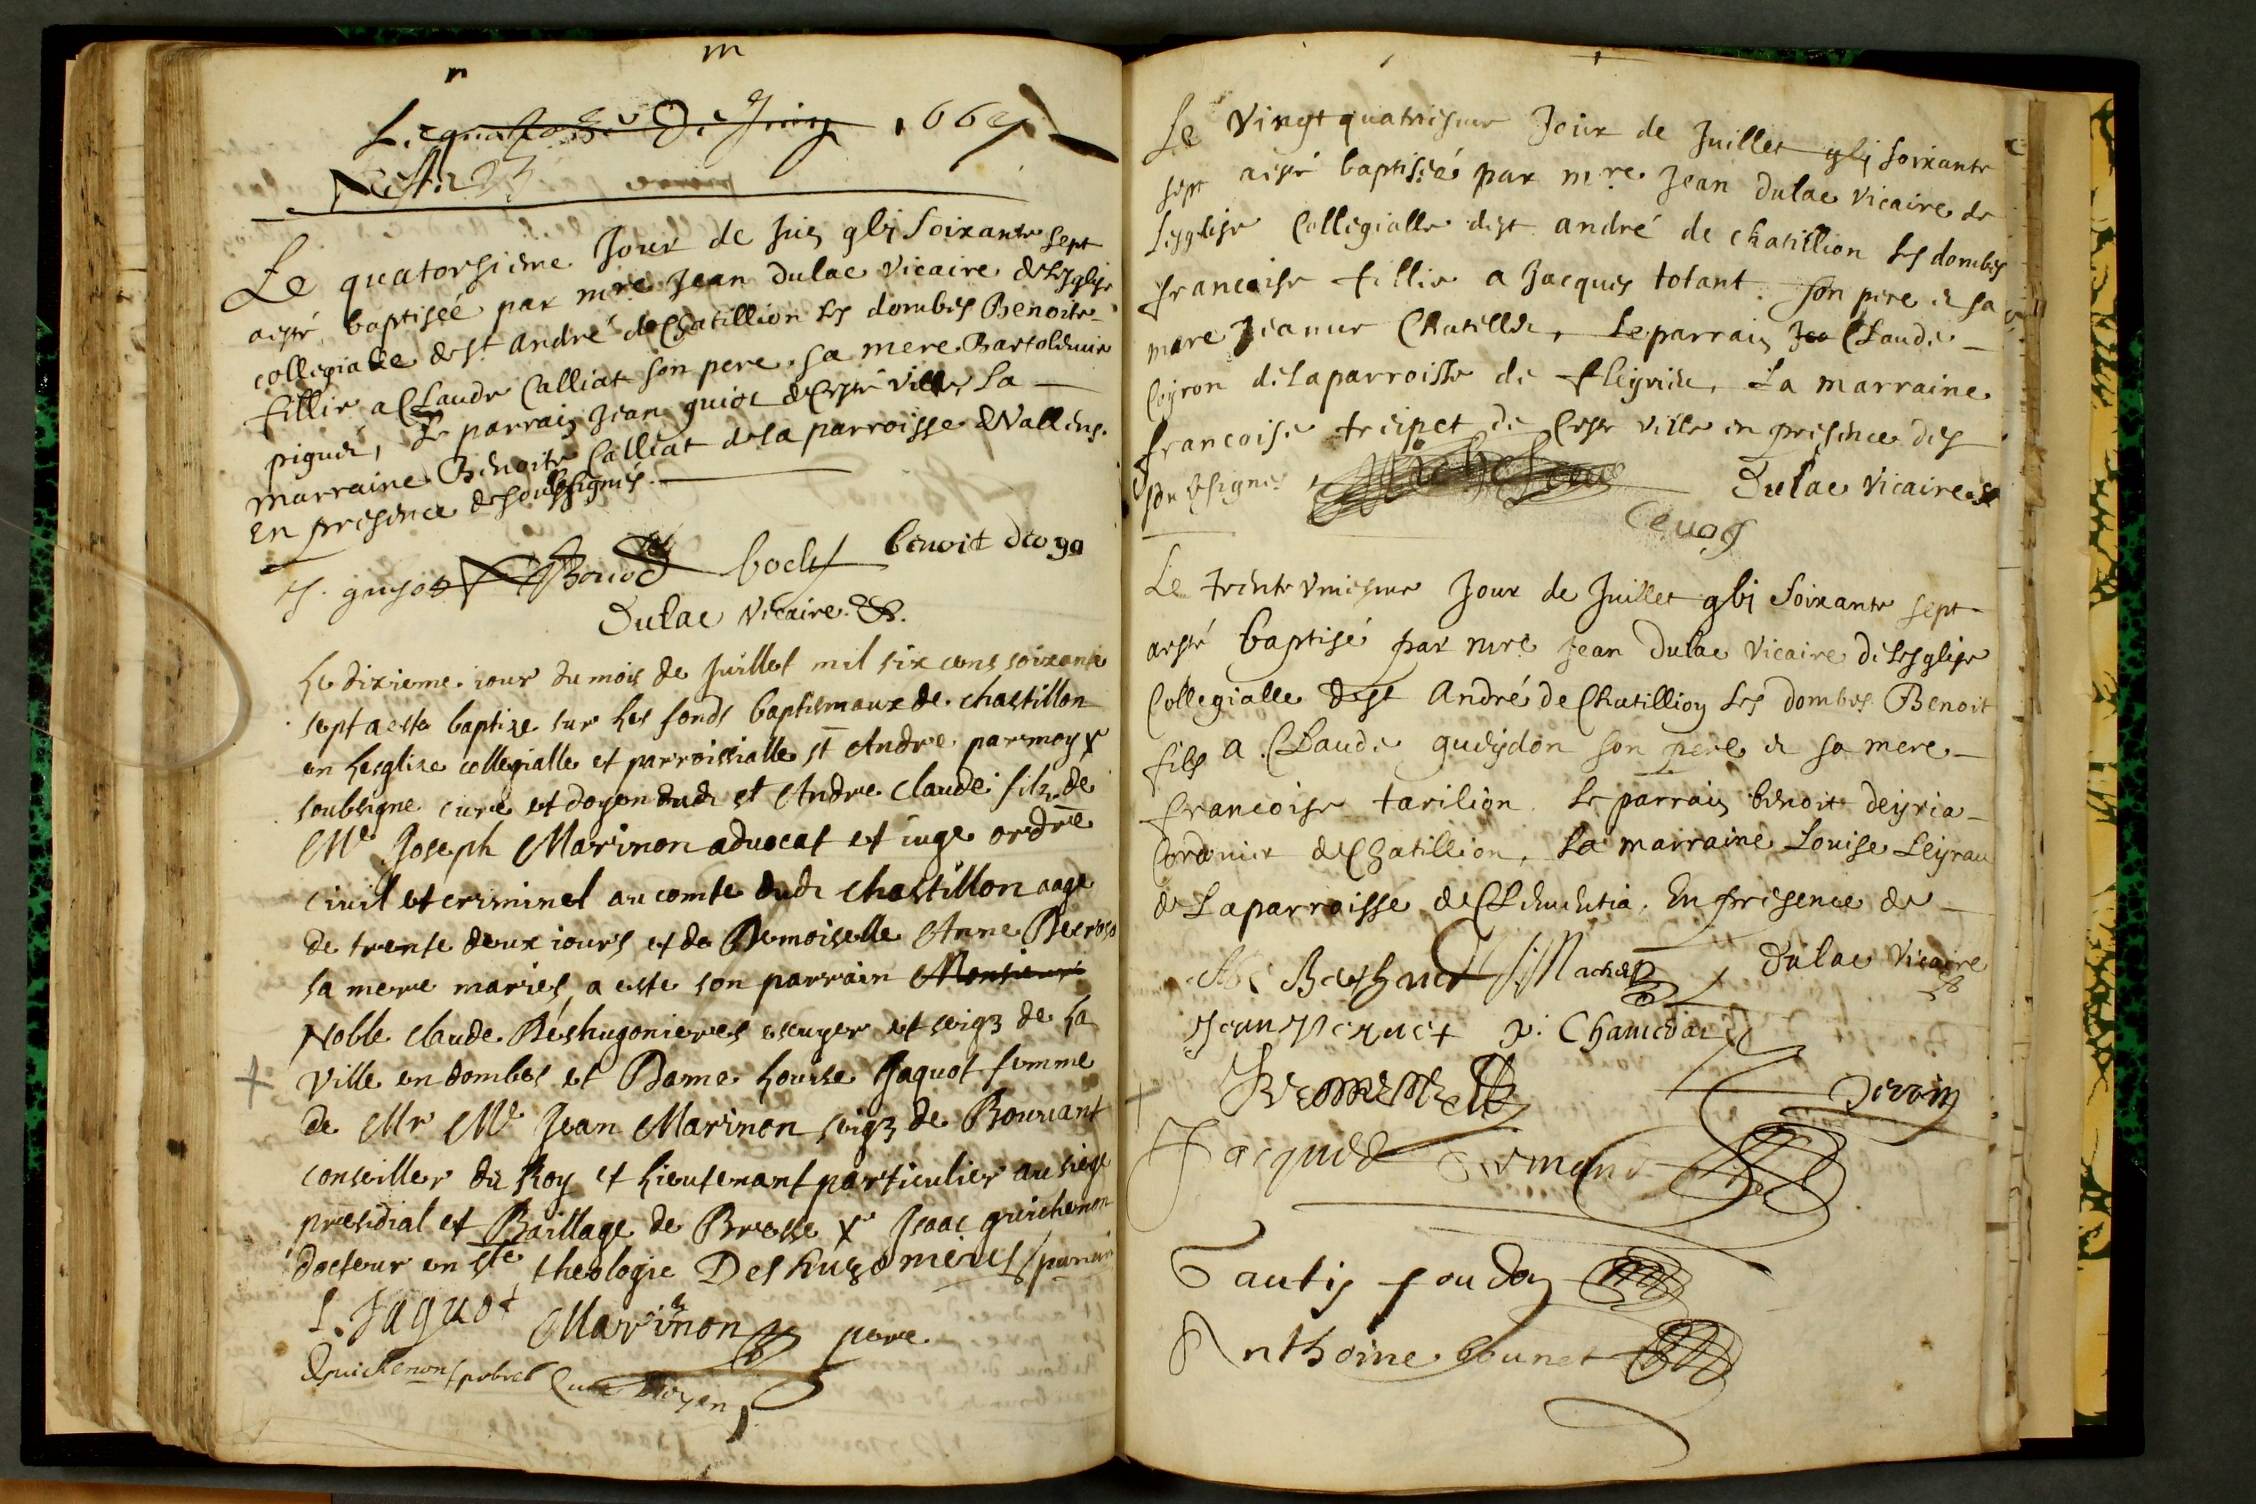 Le quatorsieme Jour de Juin gbj Soixante sept
aesté baptiseé par mre Jean Dulac vicaire de Lesglise
collegialle de st André de Chatillion les dombes Benoite
fillie a Claude Calliat son pere sa mere Bartolemie
Le parrain Jean guiot de Ceste ville, La
marraine Benoite Calliat de la parroisse de Vallins
En presence de soubssignés
J. guyot bochf benoit
Dulac vicaire
Le dixieme iour du mois de Juillet mil six cens soixante
sept a este baptize sur les fonds baptismaux de chastillon
en Lesglize collegialle et parroissialle st Andre par moy
soubsigne curé et doyen dudt st Andre Claude filz de
Me Joseph Marinon advocat et iuge ordre
civil et criminel au comte dudt chastillon aage
de trente deux iours et de Demoiselle Anne
sa mere mariés, a este son parrain Monsieur
Noble Claude Deshugonieres escuyer et seigr de La
Ville en dombes et Dame Louise Jaquot femme
de Mr Me Jean Marinon seigr de Bouvant
conseiller du Roy et Lieutenant particulier au siege
presidial et Baillage de Bresse Isaac guichenon
docteur en ste theologie Deshugonieres parain
L. Jaquot Marinon pere
Guichenon Curé Doyen
Le vingt quatriesme Jour de Juillet gbj soixante
sept aesté baptiseé par mre Jean Dulac vicaire de
Lesglise Collegialle de st andré de chatillion les dombes
francoise fillie a Jacques totant son pere et sa
mere Jeanne Le parrain Jea Claude
de la parroisse de La marraine
francoise tripet de Ceste ville en presence des
soubsignes Dulac vicaire
Le trente vniesme Jour de Juillet gbj Soixante sept
aesté baptisé par mre Jean Dulac vicaire de Lesglise
Collegialle de st André de Chatillion les dombes Benoit
fils a Claude gueydon son pere et sa mere
francoise tarilion Le parrain benoit deyria
Cordonier de Chatillion, La marraine Louise Leyrau
de La parroisse de Clementia. En presence de
Dulac vicaire
Perrin
Jacques
Anthoine brunet